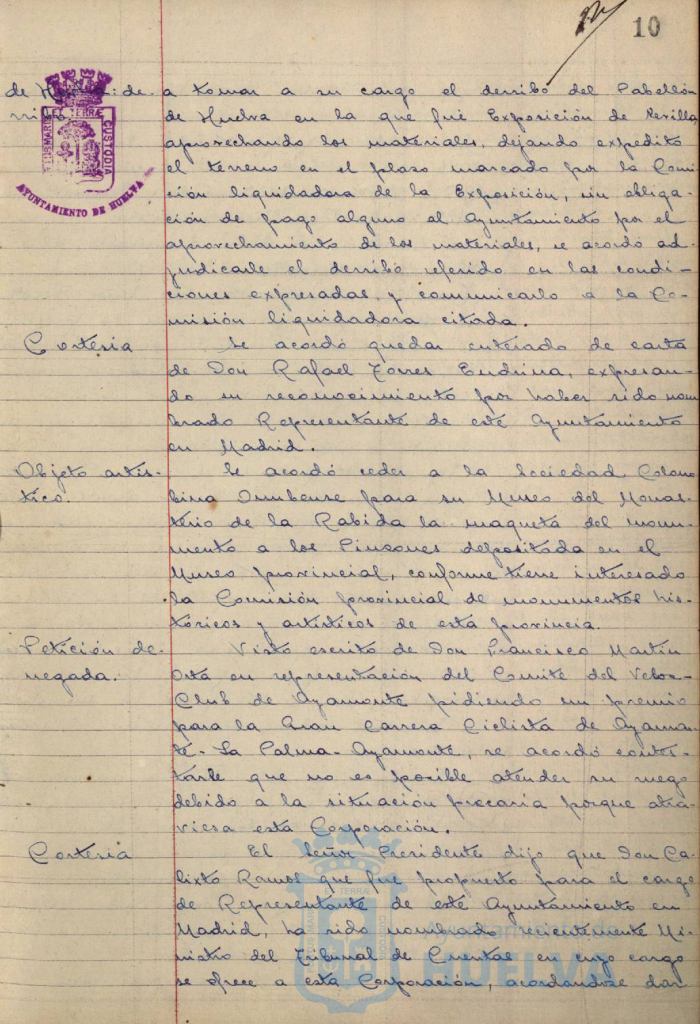 10
de Huelva: de- a tomar a su cargo el derribo del Pabellón
rribo de Huelva en la que fué Exposición de Sevilla
aprovechando los materiales, dejando expedito
el terreno en el plazo marcado por la Comi-
sión liquidadora de la Exposición, sin obliga-
ción de pago alguno al Ayuntamiento por el
aprovechamiento de los materiales, se acordó ad-
judicarle el derribo referido en las condi-
ciones expresadas, y comunicarlo a la Co-
misión liquidadora citada.
PORTUS MARIS ET TERRÆ CUSTODIA
AYUNTAMIENTO DE HUELVA
Cortesia Se acordó quedar enterado de carta
de Don Rafael Torres Endrina, expresan-
do su reconocimiento por haber sido nom
brado Representante de este Ayuntamiento
en Madrid.
Objeto artís- Se acordó ceder a la Sociedad Colom
tico. bina Onubense para su Museo del Monas-
terio de la Rabida la maqueta del monu-
mento a los Pinzones depositada en el
Museo provincial, conforme tiene interesado
la Comisión provincial de monumentos his-
tóricos y artísticos de esta provincia.
Petición de- Visto escrito de Don Francisco Martin
negada. Orta en representación del Comité del Veloz-
Club de Ayamonte pidiendo un premio
para la Gran Carrera Ciclista de Ayamon-
te-La Palma-Ayamonte, se acordó contes-
tarle que no es posible atender su ruego
debido a la situación precaria porque atra-
viesa esta Corporación.
Cortesia El Señor Presidente dijo que Don Ca-
lixto Ramos que fue propuesto para el cargo
de Representante de este Ayuntamiento en
Madrid, ha sido nombrado recientemente Mi-
nistro del Tribunal de Cuentas en cuyo cargo
se ofrece a esta Corporación, acordandose dar
Ayuntamiento de
HUELVA